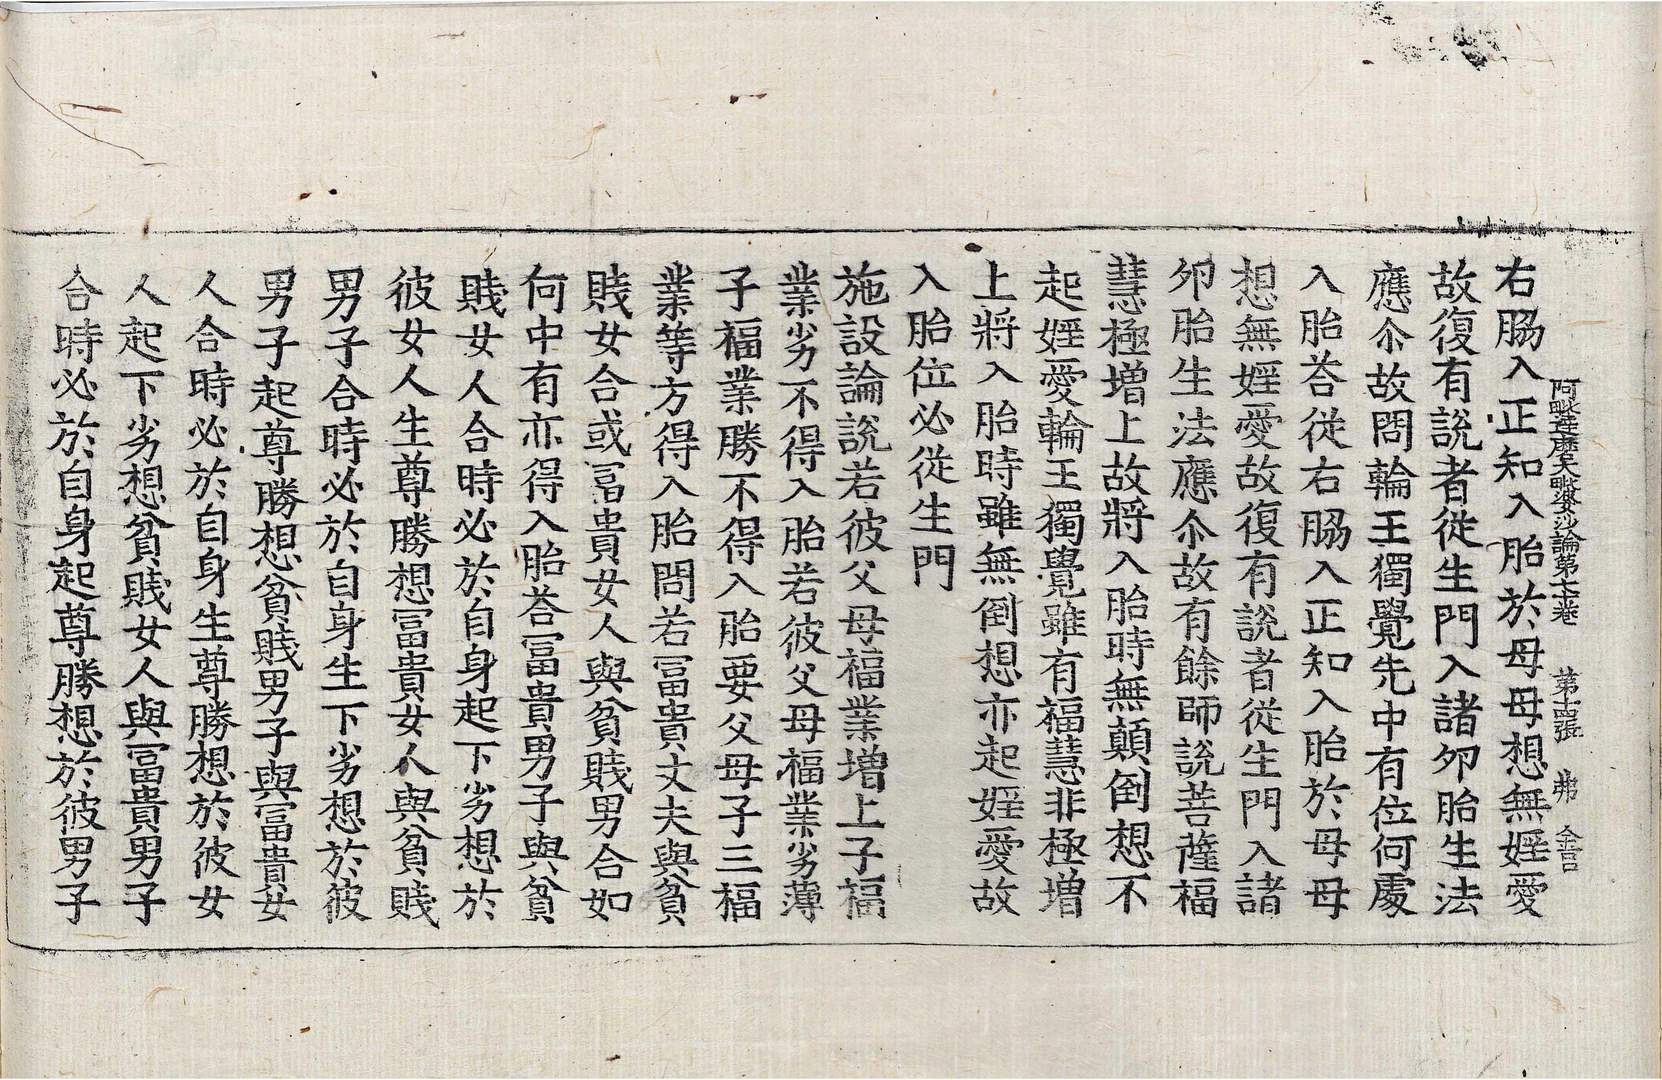 阿毗達磨大毗婆沙論第七十卷 第十一張 弗
右脇入正知入胎於母母想無婬愛
故復有說者從生門入諸卵胎生法
應尒故問輪王獨覺先中有位何處
入胎荅從右脇入正知入胎於母母
想無婬愛故復有說者從生門入諸
卵胎生法應尒故有餘師說菩薩福
慧極增上故將入胎時無顛倒想不
起婬愛輪王獨覺雖有福慧非極增
上將入胎時雖無倒想亦起婬愛故
入胎位必從生門
施設論說若彼父母福業增上子福
業劣不得入胎若彼父母福業劣薄
子福業勝不得入胎要父母子三福
業等方得入胎問若冨貴丈夫與貧
賤女合或冨貴女人與貧賤男合如
何中有亦得入胎荅冨貴男子與貧
賤女人合時必於自身起下劣想於
彼女人生尊勝想冨貴女人與貧賤
男子合時必於自身生下劣想於彼
男子起尊勝想貧賤男子與冨貴女
人合時必於自身生尊勝想於彼女
人起下劣想貧賤女人與冨貴男子
合時必於自身起尊勝想於彼男子